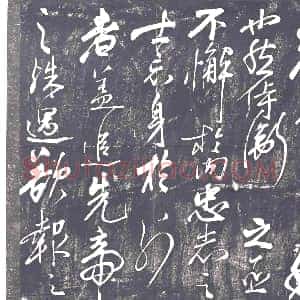 也然侍衛之臣
不懈於内忠志之
士忘身於外
者盖追先帝
之殊遇欲報之